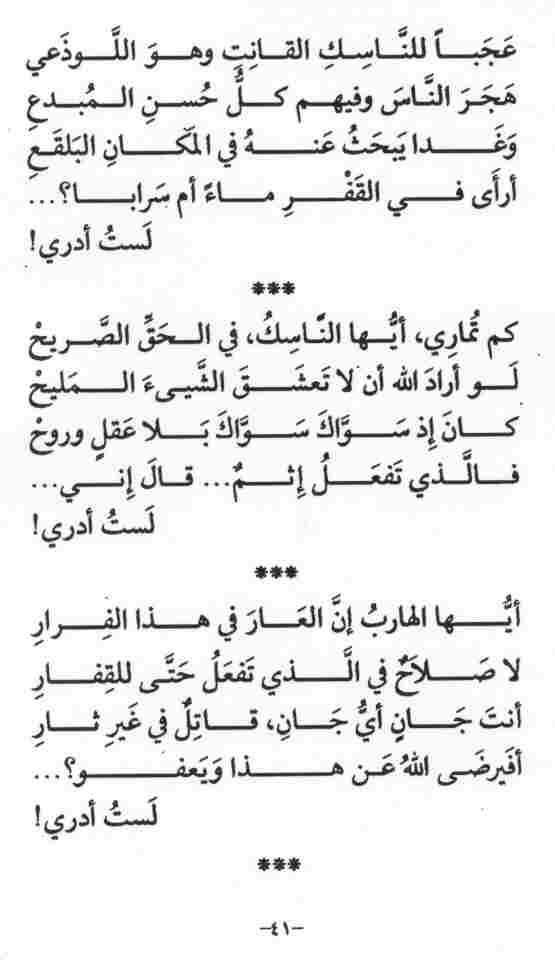 عَجَباً للنَّاسِكِ القانِتِ وهوَ اللَّوذَعي
هَجَرَ النَّاسَ وفيهم كلُّ حُسنِ المُبدعِ
وَغَدا يَبحَثُ عَنهُ في المَكانِ البَلقَعِ
أرأَى في القَفْرِ ماءً أم سَرابا؟...
لَستُ أدري!
***
كم تُماري، أيُّها النَّاسِكُ، في الحَقِّ الصَّريحْ
لَو أرادَ الله أن لا تَعشَقَ الشَّيىءَ المَليحْ
كانَ إذ سَوَّاكَ سَوَّاكَ بَلا عَقلٍ وروحْ
فالَّذي تَفعَلُ إثمٌ... قالَ إني...
لَستُ أدري!
***
أيُّها الهاربُ إنَّ العَارَ في هذا الفِرارِ
لا صَلَاحٌ في الَّذي تَفعَلُ حَتَّى للقِفارِ
أنتَ جَانٍ أيُّ جَانِ، قاتِلٌ في غَيرِ ثارِ
أفَيرضَى اللهُ عَن هذا وَيَعفو؟...
لَستُ أدري!
***
-٤١-